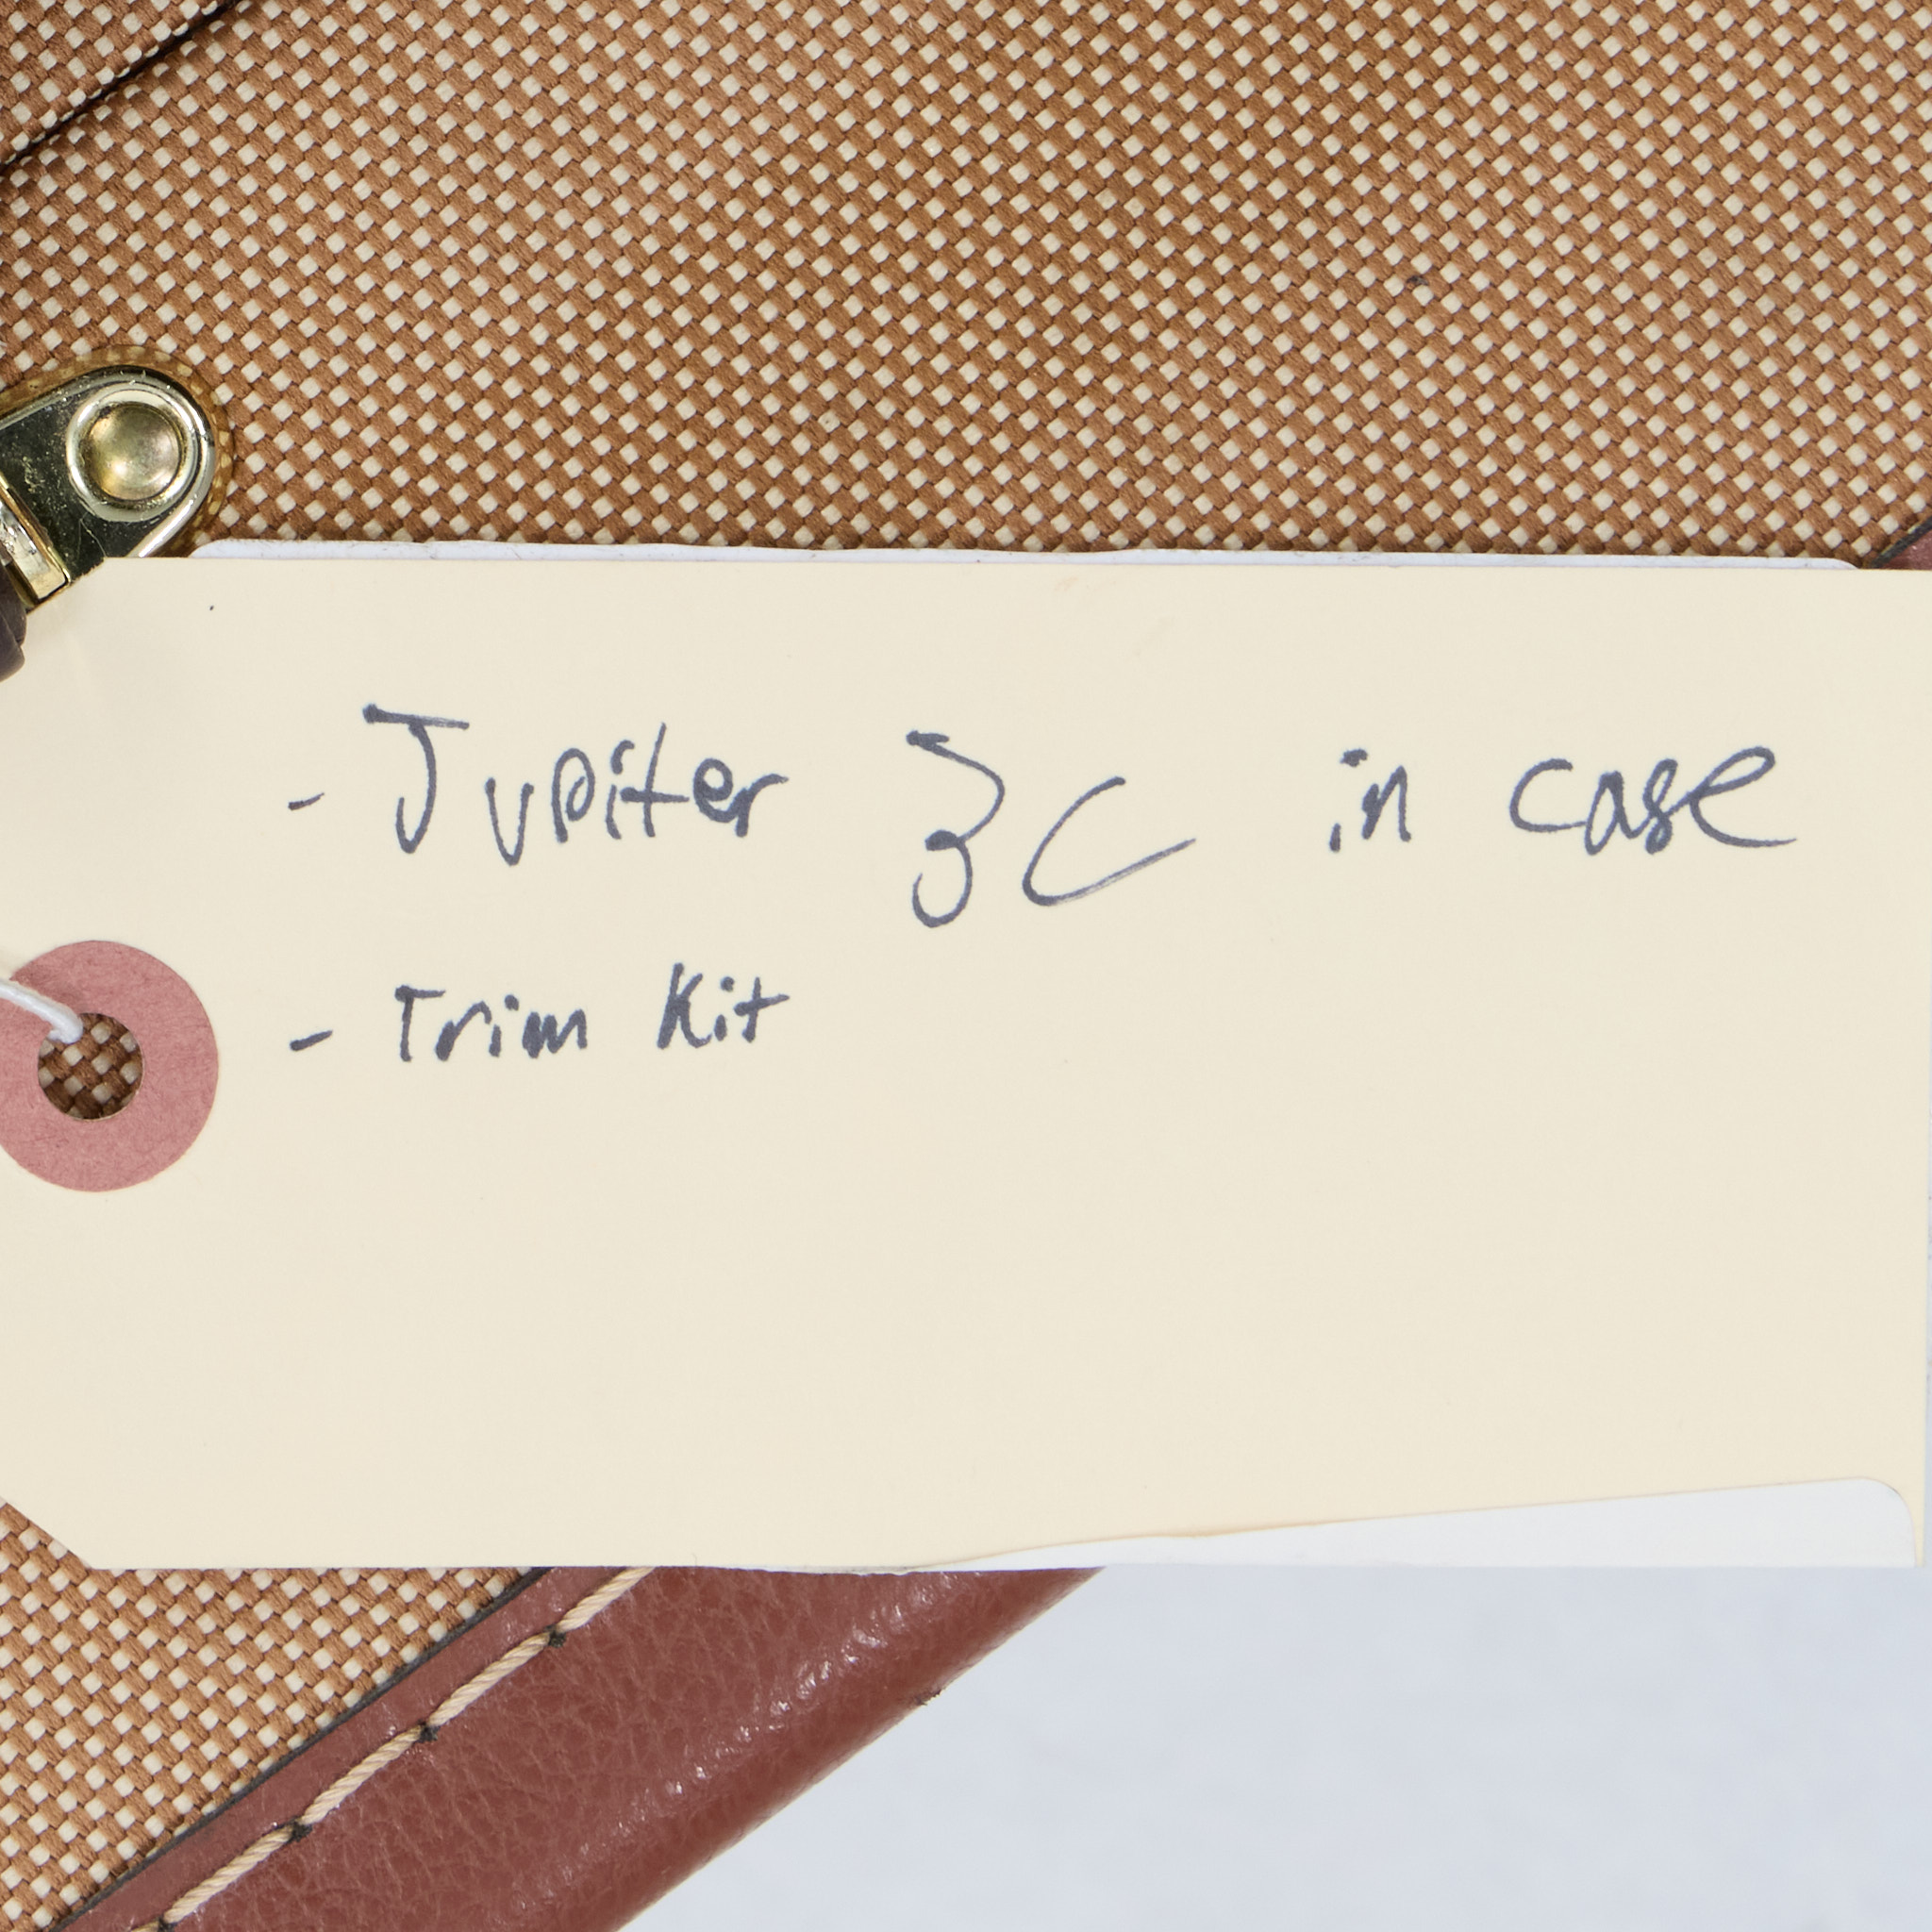 - Jupiter 3C in case
- Trim Kit